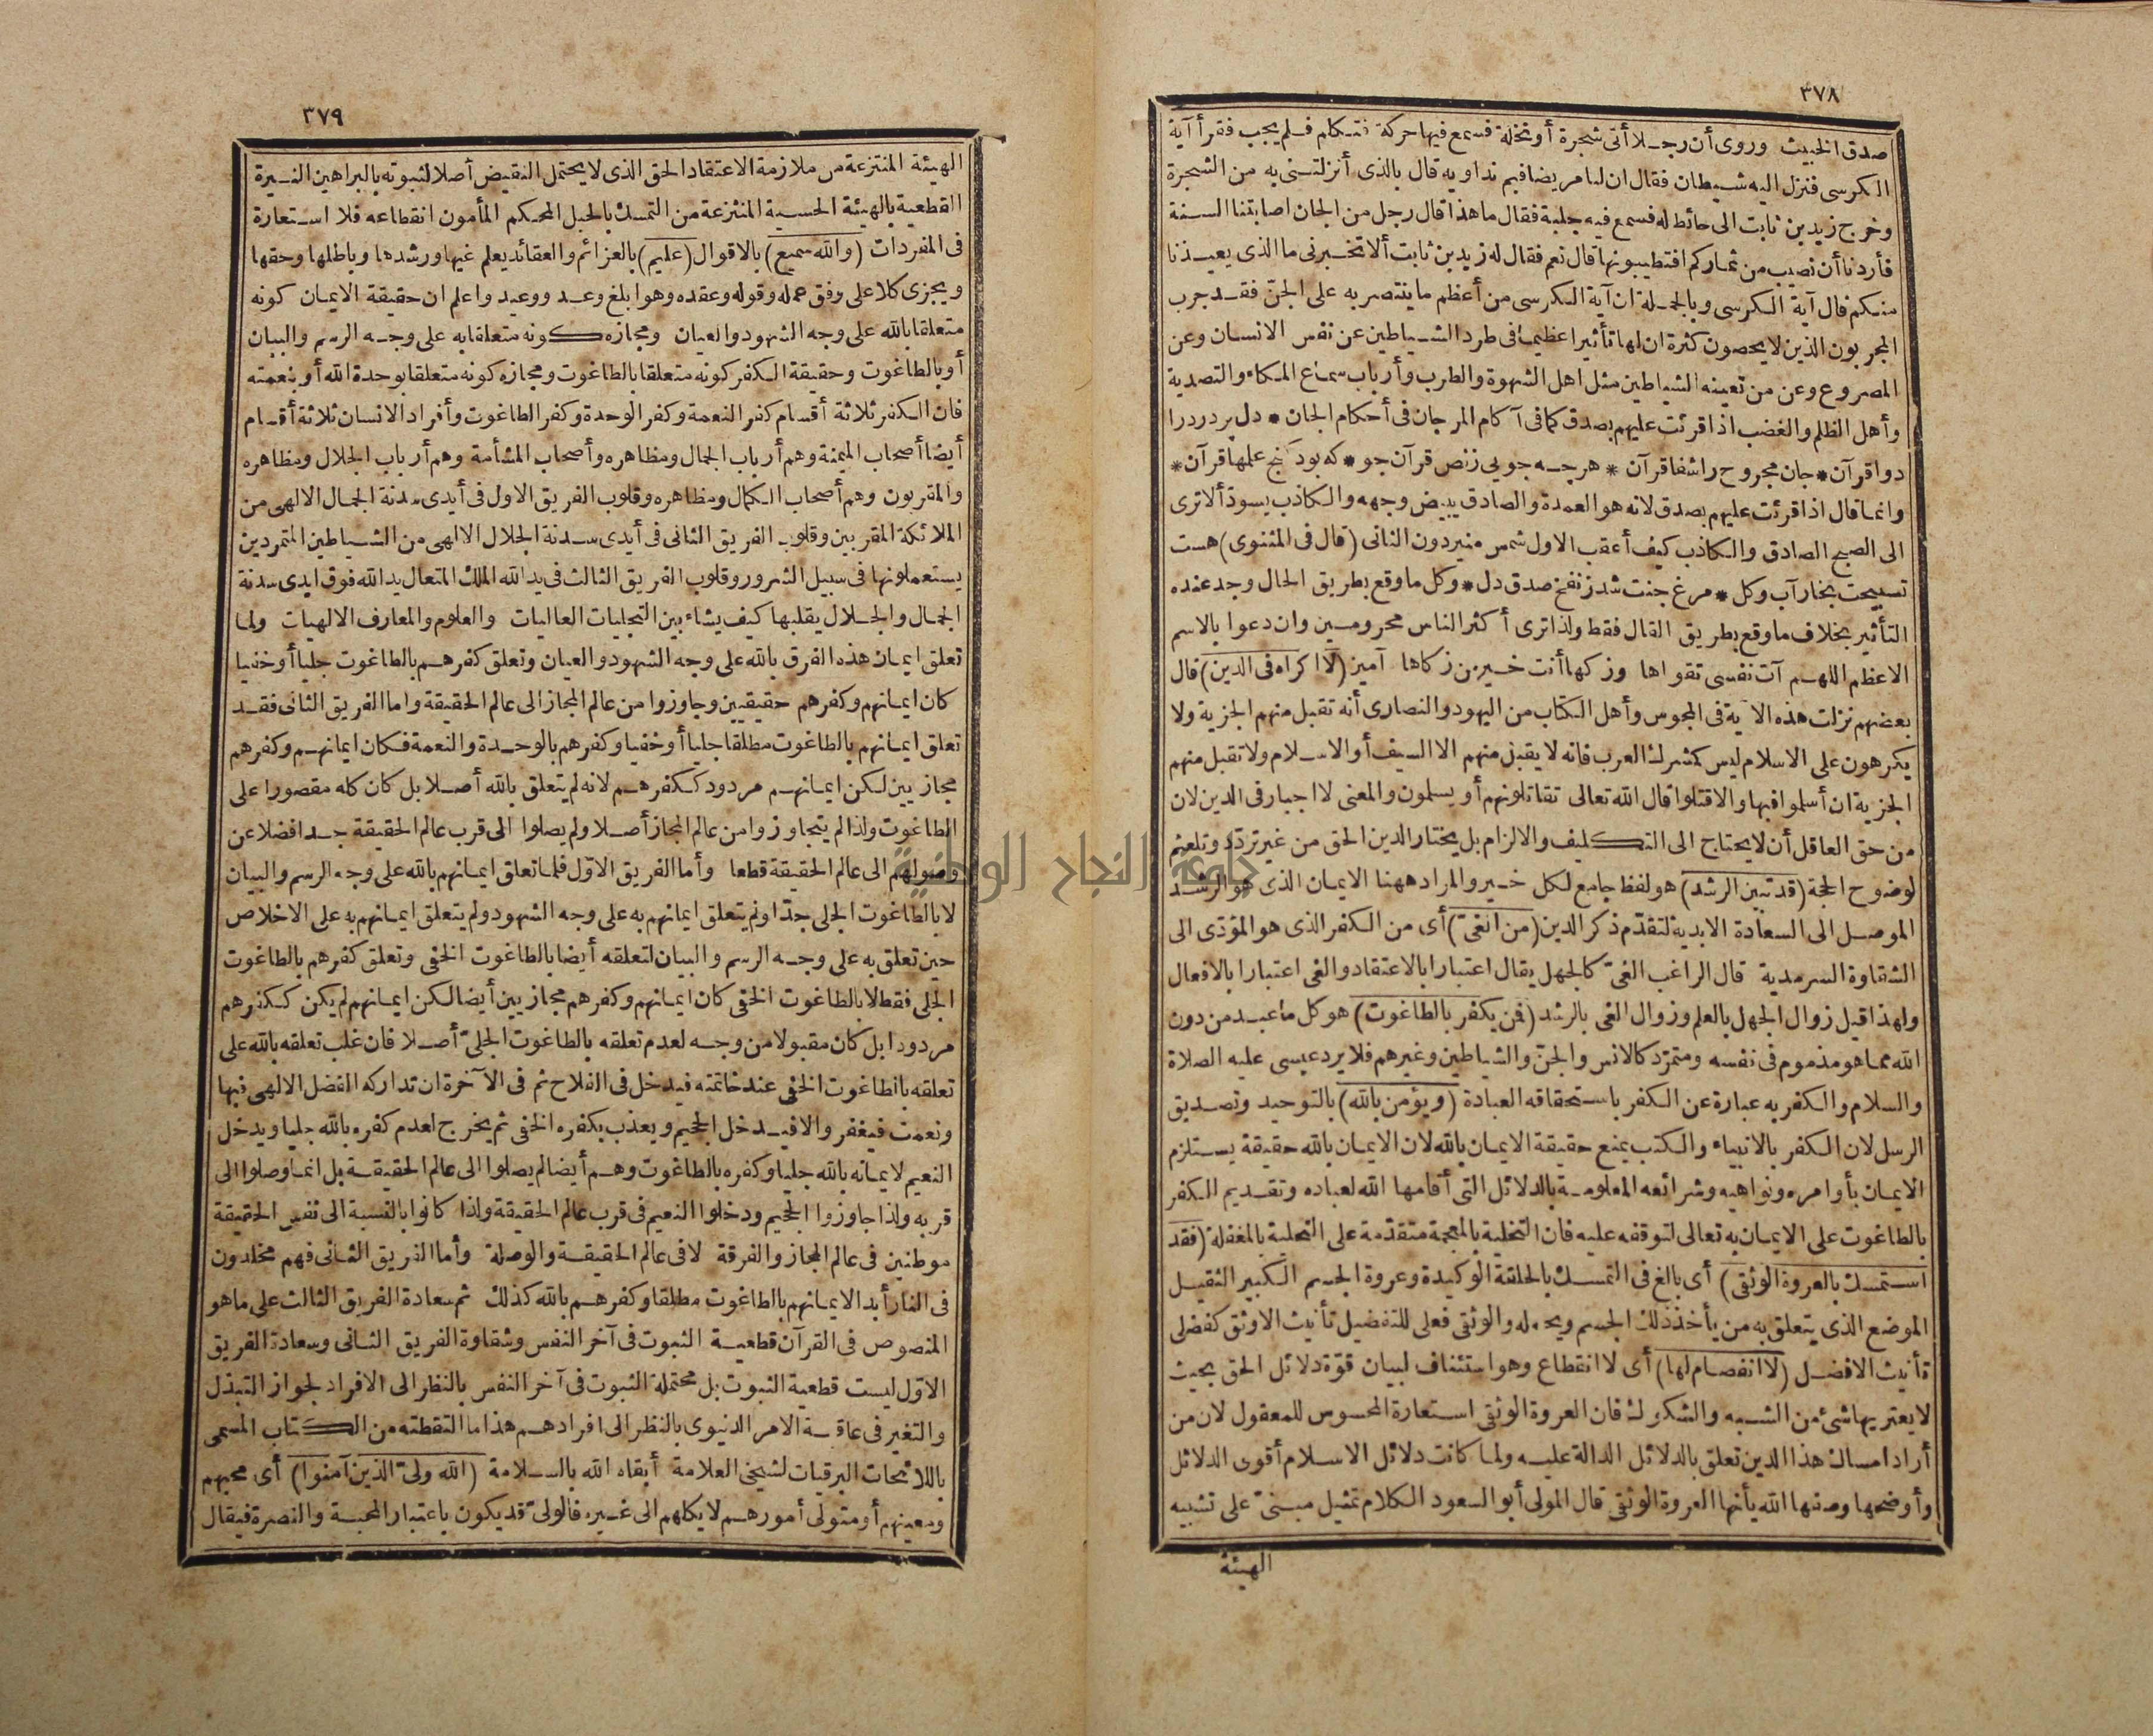 ٣٧٨
صدق الخبيث وروى أن رجلا أتى شجرة أو نخلة فسمع فيها حركة فتكلم فلم يجب فقرأ آية
الكرسى فنزل اليه شيطان فقال ان لنا مريضا فبم نداويه قال بالذى أنزلتنى به من الشجرة
وخرج زيد بن ثابت الى حائط له فسمع فيه جلبة فقال ما هذا قال رجل من الجان اصابتنا السنة
فأردنا أن نصيب من ثماركم افتطيبونها قال نعم فقال له زيد بن ثابت ألا تخبرنى ما الذى يعيذنا
منكم قال آية الكرسى وبالجملة ان آية الكرسى من أعظم ما ينتصر به على الجنّ فقد جرب
المجربون الذين لا يحصون كثرة ان لها تأثيرا عظيما فى طرد الشياطين عن نفس الانسان وعن
المصروع وعن من تعينه الشياطين مثل اهل الشهوة والطرب وأرباب سماع المكاء والتصدية
وأهل الظلم والغضب اذا قرئت عليهم بصدق كما فى آكام المرجان فى أحكام الجان * دل پر درد را
دوا قرآن * جان مجروح را شفا قرآن * هر چه جويى ز نص قرآن جو * كه بود كنج علمها قرآن *
وانما قال اذا قرئت عليهم بصدق لانه هو العمدة والصادق يبيض وجهه والكاذب يسودّ ألا ترى
الى الصبح الصادق والكاذب كيف أعقب الاول شمس منير دون الثانى (قال فى المثنوى) هست
تسبيحت بخار آب وكل * مرغ جنت شد ز نفخ صدق دل * وكل ما وقع بطريق الحال وجد عنده
التأثير بخلاف ما وقع بطريق القال فقط ولذا ترى أكثر الناس محرومين وان دعوا بالاسم
الاعظم اللهم آت نفسى تقواها وزكها أنت خير من زكاها آمين (لا اكراه فى الدين) قال
بعضهم نزلت هذه الآية فى المجوس وأهل الكتاب من اليهود والنصارى أنه تقبل منهم الجزية ولا
يكرهون على الاسلام ليس كمشرك العرب فانه لا يقبل منهم الا السيف أو الاسلام ولا تقبل منهم
الجزية ان أسلموا فبها والا قتلوا قال الله تعالى تقاتلونهم أو يسلمون والمعنى لا اجبار فى الدين لان
من حق العاقل أن لا يحتاج الى التكليف والالزام بل يختار الدين الحق من غير تردّد وتلعثم
لوضوح الحجة (قد تبين الرشد) هو لفظ جامع لكل خير والمراد ههنا الايمان الذى هو الرشد
الموصل الى السعادة الابدية لتقدّم ذكر الدين (من الغىّ) أى من الكفر الذى هو المؤدّى الى
الشقاوة السرمدية قال الراغب الغىّ كالجهل يقال اعتبارا بالاعتقاد والغى اعتبارا بالافعال
ولهذا قيل زوال الجهل بالعلم وزوال الغى بالرشد (فمن يكفر بالطاغوت) هو كل ما عبد من دون
الله مما هو مذموم فى نفسه ومتمرّد كالانس والجنّ والشياطين وغيرهم فلا يرد عيسى عليه الصلاة
والسلام والكفر به عبارة عن الكفر باستحقاقه العبادة (ويؤمن بالله) بالتوحيد وتصديق
الرسل لان الكفر بالانبياء والكتب يمنع حقيقة الايمان بالله لان الايمان بالله حقيقة يستلزم
الايمان بأوامره ونواهيه وشرائعه المعلومة بالدلائل التى أقامها الله لعباده وتقديم الكفر
بالطاغوت على الايمان به تعالى لتوقفه عليه فان التخلية بالمعجمة متقدّمة على التحلية بالمغفلة (فقد
استمسك بالعروة الوثقى) أى بالغ فى التمسك بالحلقة الوكيدة وعروة الجسم الكبير الثقيل
الموضع الذى يتعلق به من يأخذ ذلك الجسم ويحمله والوثقى فعلى للتفضيل تأنيث الاوثق كفضلى
تأنيث الافضل (لا انفصام لها) أى لا انقطاع وهو استئناف لبيان قوّة دلائل الحق بحيث
لا يعتريها شئ من الشبه والشكوك فان العروة الوثقى استعارة المحسوس للمعقول لان من
أراد امساك هذا الدين تعلق بالدلائل الدالة عليه ولما كانت دلائل الاسلام أقوى الدلائل
وأوضحها وصفها الله بأنها العروة الوثقى قال المولى أبو السعود الكلام تمثيل مبنىّ على تشبيه
الهيئة
٣٧٩
الهيئة المنتزعة من ملازمة الاعتقاد الحق الذى لا يحتمل النقيض أصلا لثبوته بالبراهين النيرة
القطعية بالهيئة الحسية المنتزعة من التمسك بالحبل المحكم المأمون انقطاعه فلا استعارة
فى المفردات (والله سميع) بالاقوال (عليم) بالعزائم والعقائد يعلم غيها ورشدها وباطلها وحقها
ويجزى كلا على وفق عمله وقوله وعقده وهو أبلغ وعد ووعيد واعلم ان حقيقة الايمان كونه
متعلقا بالله على وجه الشهود والعيان ومجازه كونه متعلقا به على وجه الرسم والبيان
أو بالطاغوت وحقيقة الكفر كونه متعلقا بالطاغوت ومجازه كونه متعلقا بوحدة الله أو بنعمته
فان الكفر ثلاثة أقسام كفر النعمة وكفر الوحدة وكفر الطاغوت وأفراد الانسان ثلاثة أقسام
أيضا أصحاب الميمنة وهم أرباب الجمال ومظاهره وأصحاب المشأمة وهم أرباب الجلال ومظاهره
والمقربون وهم أصحاب الكمال ومظاهره وقلوب الفريق الاول فى أيدى سدنة الجمال الالهى من
الملائكة المقربين وقلوب الفريق الثانى فى أيدى سدنة الجلال الالهى من الشياطين المتمردين
يستعملونها فى سبيل الشرور وقلوب الفريق الثالث فى يد الله الملك المتعال يد الله فوق ايدى سدنة
الجمال والجلال يقلبها كيف يشاء بين التجليات العاليات والعلوم والمعارف الالهيات ولما
تعلق ايمان هذه الفرق بالله على وجه الشهود والعيان وتعلق كفرهم بالطاغوت جليا أو خفيا
كان ايمانهم وكفرهم حقيقيين وجاوزوا من عالم المجاز الى عالم الحقيقة واما الفريق الثانى فقد
تعلق ايمانهم بالطاغوت مطلقا جليا أو خفيا وكفرهم بالوحدة والنعمة فكان ايمانهم وكفرهم
مجازيين لكن ايمانهم مردود ككفرهم لانه لم يتعلق بالله أصلا بل كان كله مقصورا على
الطاغوت ولذا لم يتجاوزوا من عالم المجاز أصلا ولم يصلوا الى قرب عالم الحقيقة جدا فضلا عن
وصولهم الى عالم الحقيقة قطعا وأما الفريق الاوّل فلما تعلق ايمانهم بالله على وجه الرسم والبيان
لا بالطاغوت الجلى جدّا ولم يتعلق ايمانهم به على وجه الشهود ولم يتعلق ايمانهم به على الاخلاص
حين تعلق به على وجه الرسم والبيان لتعلقه أيضا بالطاغوت الخفى وتعلق كفرهم بالطاغوت
الجلى فقط لا بالطاغوت الخفى كان ايمانهم وكفرهم مجازيين أيضا لكن ايمانهم لم يكن ككفرهم
مردودا بل كان مقبولا من وجه لعدم تعلقه بالطاغوت الجلىّ أصلا فان غلب تعلقه بالله على
تعلقه بالطاغوت الخفى عند خاتمته فيدخل فى الفلاح ثم فى الآخرة ان تداركه الفضل الالهى فبها
ونعمت فيغفر والا فيدخل الجحيم ويعذب بكفره الخفى ثم يخرج لعدم كفره بالله جليا ويدخل
النعيم لايمانه بالله جليا وكفره بالطاغوت وهم أيضا لم يصلوا الى عالم الحقيقة بل انما وصلوا الى
قربه ولذا جاوزوا الجحيم ودخلوا النعيم فى قرب عالم الحقيقة ولذا كانوا بالنسبة الى نفس الحقيقة
موطنين فى عالم المجاز والفرقة لا فى عالم الحقيقة والوصلة وأما الفريق الثانى فهم مخلدون
فى النار أبدا لايمانهم بالطاغوت مطلقا وكفرهم بالله كذلك ثم سعادة الفريق الثالث على ما هو
المنصوص فى القرآن قطعية الثبوت فى آخر النفس وشقاوة الفريق الثانى وسعادة الفريق
الاوّل ليست قطعية الثبوت بل محتملة الثبوت فى آخر النفس بالنظر الى الافراد لجواز التبدّل
والتغير فى عاقبة الامر الدنيوى بالنظر الى افرادهم هذا ما التقطته من الكتاب المسمى
باللائحات البرقيات لشيخى العلامة أبقاه الله بالسلامة (الله ولىّ الذين آمنوا) أى محبهم
ومعينهم أو متولى أمورهم لا يكلهم الى غيره فالولىّ قد يكون باعتبار المحبة والنصرة فيقال
جامعة النجاح الوطنية